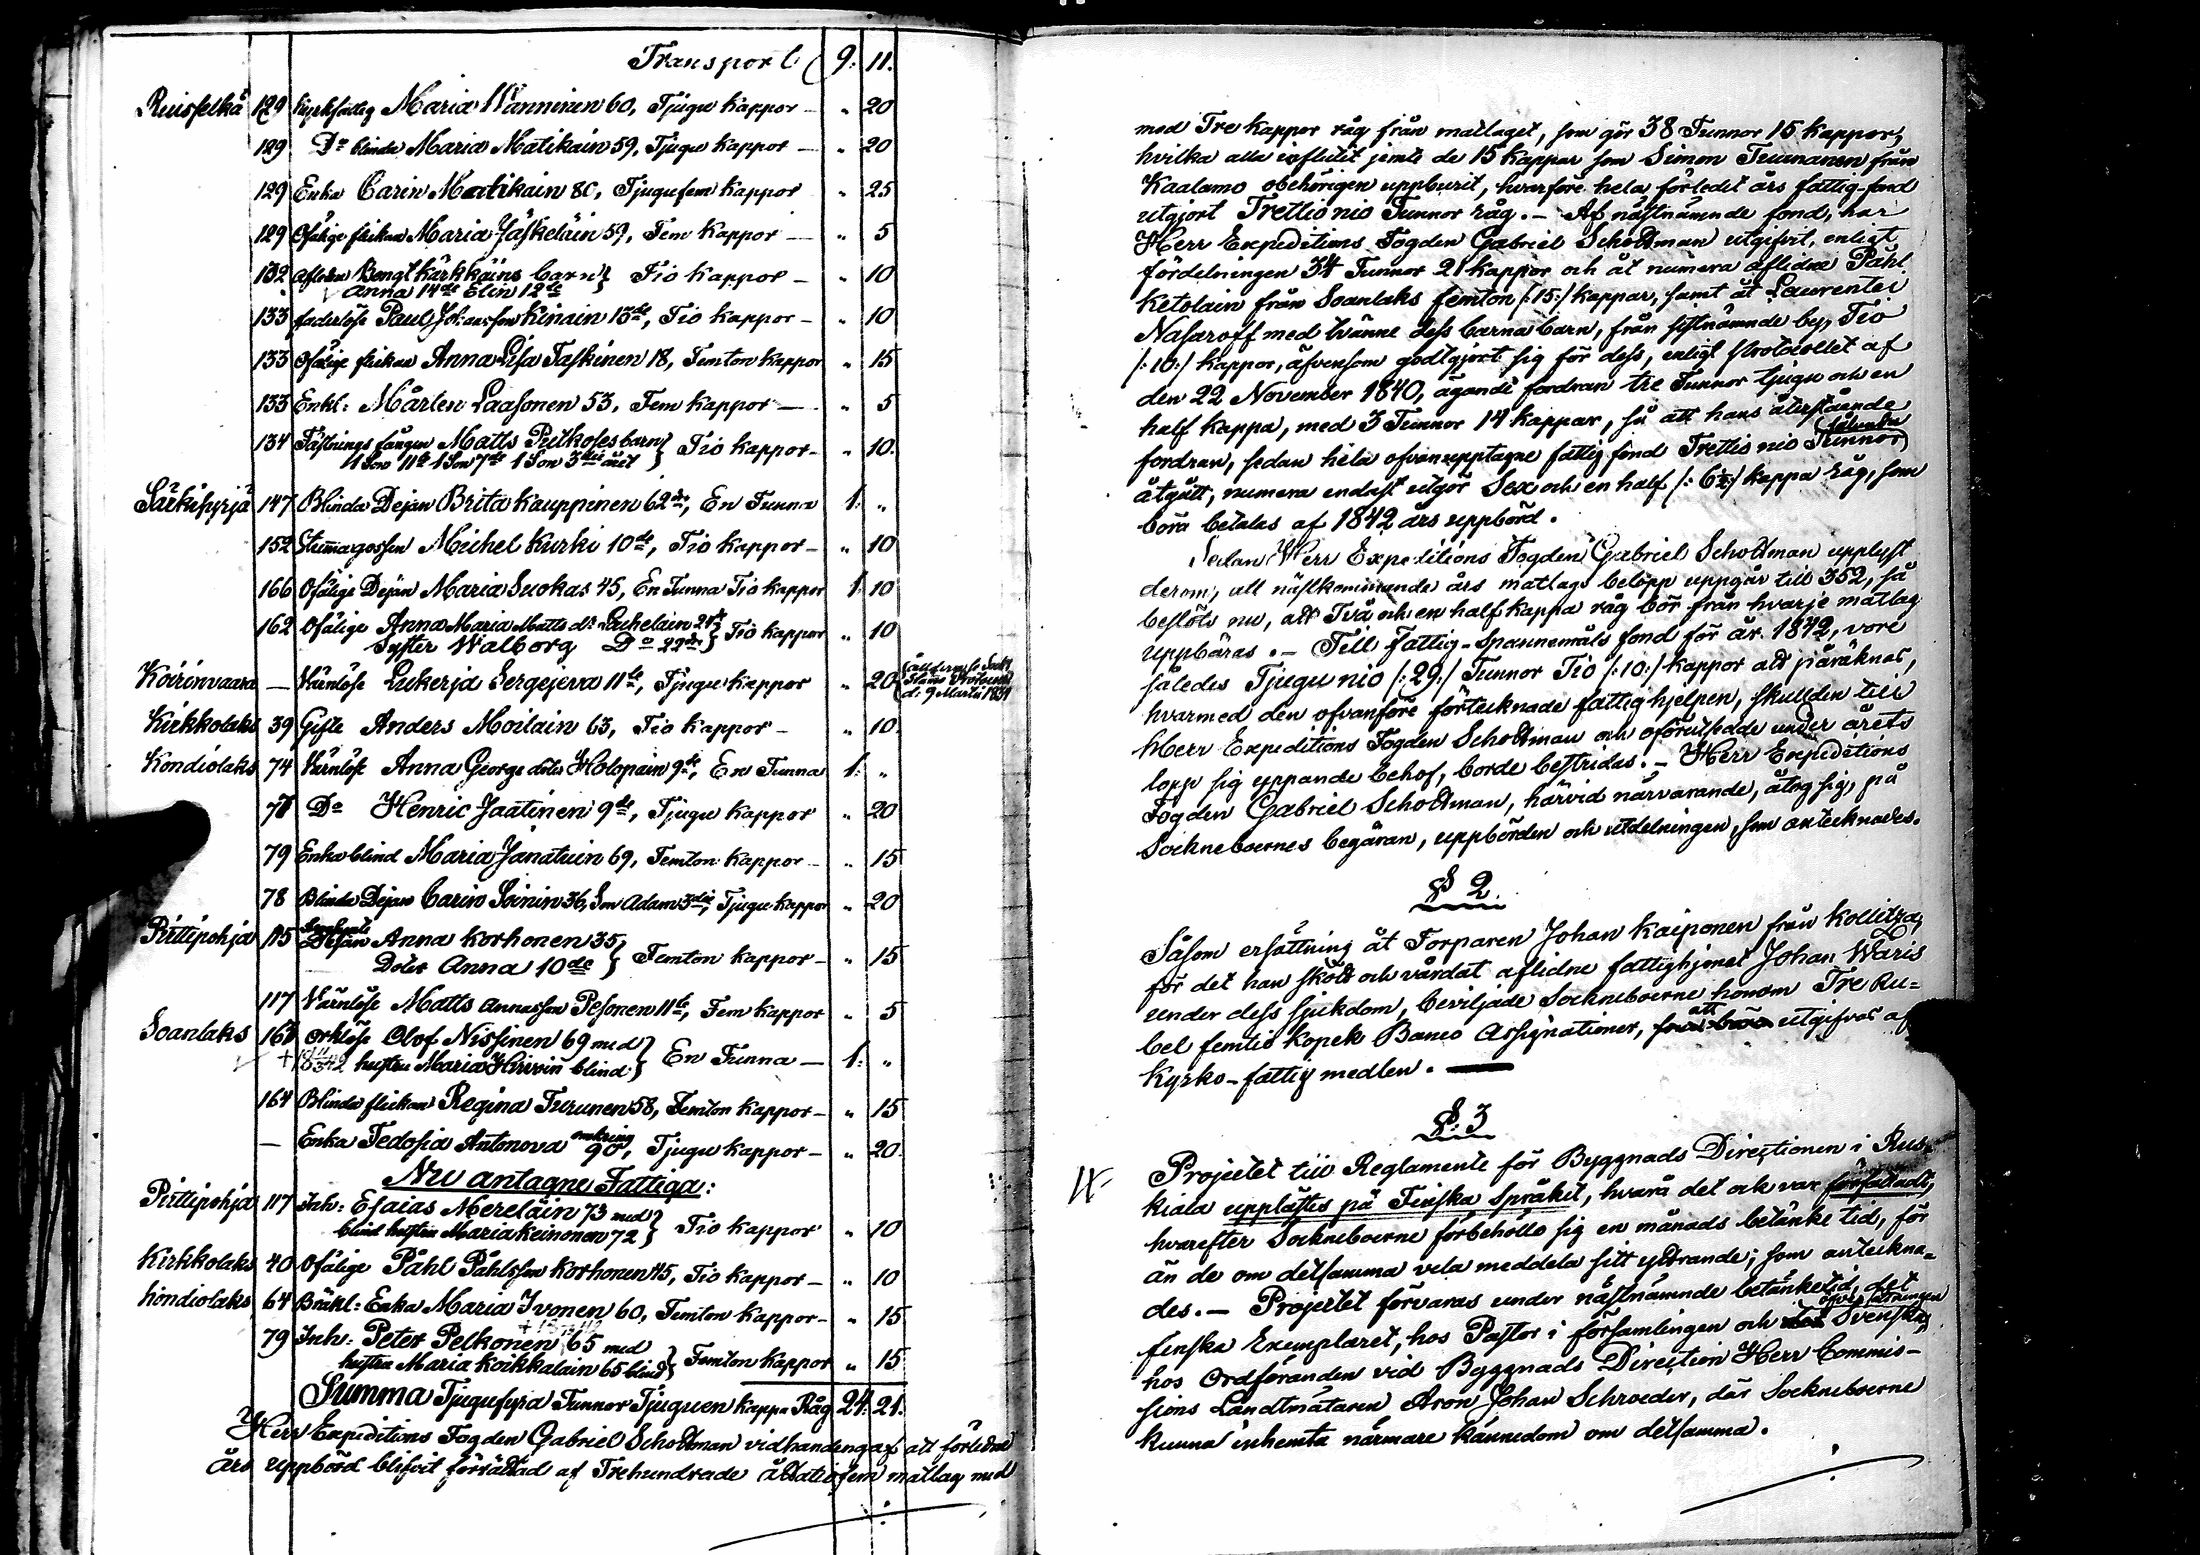 Transport 9: 11.
Ruisselkä 129 Kyrkfattig Maria Wänninen 60, Tjugu Kappor — „ 20
129 Do blinda Maria Matikain 59, Tjugu Kappor — „ 20
129 Enka Carin Matikain 80, Tjugufem Kappor „ 25
129 Ofälige flickan Maria Jäskeläin 59, Fem Kappor — „ 5
132 Aflidne Bengt Kärkkäins barn } Tio Kappor — „ 10
Anna 14de Elin 12te
133 faderlöse Paul Johansson Kinain 13de, Tio Kappor — „ 10
133 Ofälige flickan Anna Lisa Taskinen 18, Femton Kappor „ 15
133 Enkl: Mårten Laasonen 53, Fem Kappor — „ 5
134 Fästnings fången Matts Putkoses barn } Tio Kappor — „ 10.
1 Son 11te 1 Son 7de 1 Son 3die året
Särkisyrjä 147 Blinda Dejan Brita Kauppinen 62dra, En Tunna 1: „
152 Stummagossen Michel Kurki 10de, Tio Kappor — „ 10
166 Ofälige Dejan Maria Suokas 45, En Tunna Tio Kappor 1: 10
162 Ofälige Anna Maria Matts dr Luhelain 24de } Tio Kappor „ 10
Syster Walborg Do 22dra
Koirinvaara — Värnlöse Lukerja Sergejeva 11te, Tjugu Kappor „ 20
d: 9 Martii 1839
Kirkkolaks 39 Gifte Anders Moilain 63, Tio Kappor — „ 10.
Kondiolaks 74 Värnlöse Anna George doter Holopain 9de, En Tunna 1: „
78 Do Henric Jaatinen 9de, Tjugu Kappor „ 20
79 Enka blind Maria Janatuin 69, Femton Kappor — „ 15
78 Blinda Dejan Carin Soinin 36, Son Adam 3die, Tjugu Kappor „ 20
Pirttipohja 115 Dejan Anna Korhonen 35 } Femton Kappor — „ 15
Doter Anna 10de
117 Värnlöse Matts Annasson Pesonen 11te, Fem Kappor „ 5
Soanlaks 161 Orklöse Olof Nissinen 69 med } En Tunna — 1: „
hustru Maria Hirvoin blind
164 Blinda flickan Regina Turunen 58, Femton Kappor — „ 15
— Enka Fedosia Antonova omkring 90, Tjugu Kappor — „ 20.
Nu antagne Fattiga:
Pirttipohja 117 Inh: Esaias Mereläin 73 med } Tio Kappor „ 10
blind hustru Maria Keinonen 72
Kirkkolaks 40 Ofälige Påhl Påhlsson Korhonen 45, Tio Kappor — „ 10
Kondiolaks 64 Bräkl: Enka Maria Ivonen 60, Femton Kappor — „ 15
79 Inh: Peter Pelkonen 65 med } Femton Kappor „ 15
hustru Maria Koikkalain 65 blind
Summa Tjugufyra Tunnor Tjuguen Kappa Råg 24: 21.
Herr Expeditions Fogden Gabriel Scholdtman vidhandengaf att förledne
års uppbörd blifvit förrättad af Trehundrade åttatiofem matlag med
med Tre Kappor råg från matlaget, som gör 38 Tunnor 15 Kappor,
hvilka alla influtit jemte de 15 Kappar som Simon Tuunanen från
Kaalamo obehörigen uppburit, hvarföre hela förledet års fattig-fond
utgjort Trettionio Tunnor råg. — Af nästnämnde fond, har
Herr Expeditions Fogden Gabriel Scholdtman utgifvit, enligt
fördelningen 34 Tunnor 21 Kappor och åt numera aflidna Påhl
Ketolain från Soanlaks femton /:15:/ Kappar, samt åt Laurentei
Nasaroff med tvänne dess barna barn, från sistnämnde by, Tio
/:10:/ Kappor, äfvensom godtgjort sig för dess, enligt Protocollet af
den 22 November 1840, ägande fordran tre Tunnor tjugu och en
half Kappa, med 3 Tunnor 14 Kappar, så att hans återstående
fordran, sedan hela ofvanupptagne fattig fond Trettio nio Tunnor sålunda
åtgått, numera endast utgör Sex och en half /: 6½ :/ Kappa råg, som
böra betalas af 1842 års uppbörd.
Sedan Herr Expeditions Fogden Gabriel Scholdtman upplyst
derom, att nästkommande års matlags belopp uppgår till 352, så
beslöts nu, att Två och en half Kappa råg bör från hvarje matlag
uppbäras. — Till Fattig-Spannemåls fond för år 1842, vore
således Tjugu nio /:29:/ Tunnor Tio /:10:/ Kappor att påräknas,
hvarmed den ofvanföre förtecknade fattighjelpen, skulden till
Herr Expeditions Fogden Scholdtman och oförutsedde under årets
lopp sig yppande behof, borde bestridas. — Herr Expeditions
Fogden Gabriel Scholdtman, härvid närvarande, åtog sig, på
Socknеboernes begäran, uppbörden och utdelningen, som antecknades.
§ 2.
Såsom ersättning åt Torparen Johan Kaiponen från Kollitza,
för det han skött och vårdat aflidne fattighjonet Johan Waris
under dess sjukdom, beviljade Sockneboerne honom Tre Ru-
bel femtio Kopek Banco Assignationer, att utgifvas af
Kyrko-fattig medlen.
§: 3
Projectet till Reglamente för Byggnads Directionen i Rus-
kiala upplästes på Finska Språket, hvarå det ock var författadt,
hvarefter Sockneboerne förbehöllo sig en månads betänke tid, för
än de om detsamma vela meddela sitt yttrande; som anteckna-
des. — Projectet förvaras under nästnämnde betänketid, det
finska Exemplaret, hos Pastor i församlingen och öfversättningen Svenska,
hos Ordföranden vid Byggnads Direction Herr Commis-
sions Landtmätaren Aron Johan Schroeder, där Sockneboerne
kunna inhemta närmare kännedom om detsamma.